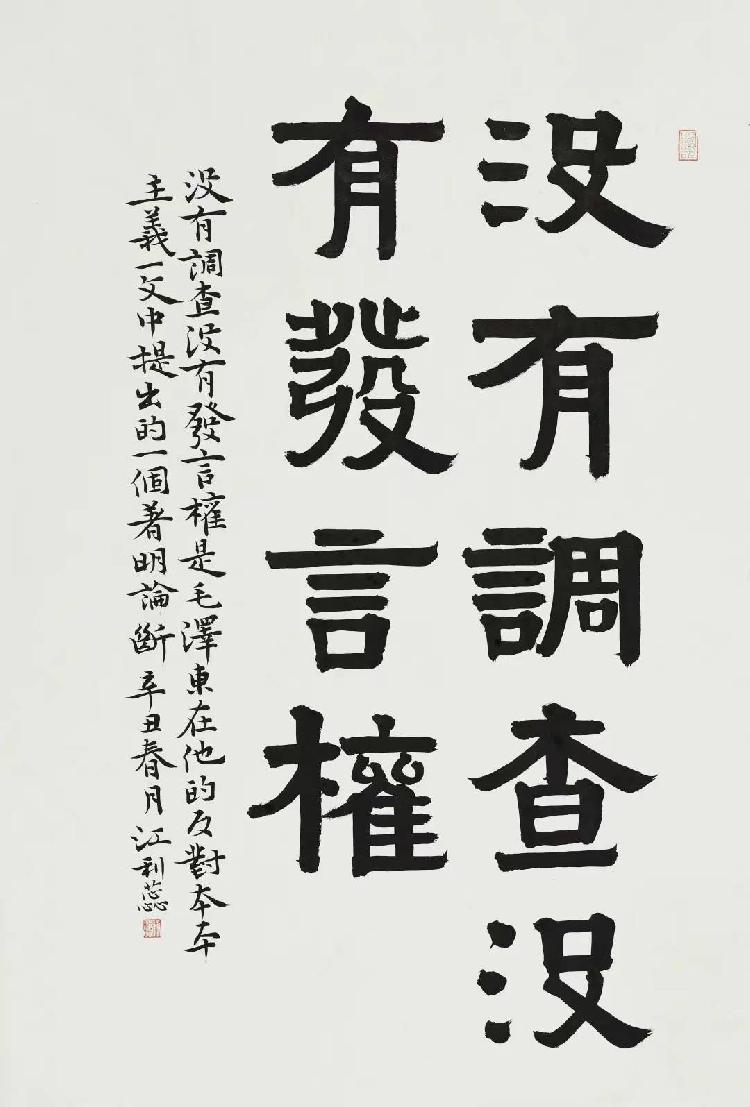 没有調查没
有發言權
没有調查没有發言權是毛澤東在他的反對本本
主義一文中提出的一個著明論斷 辛丑春月 江利蕊